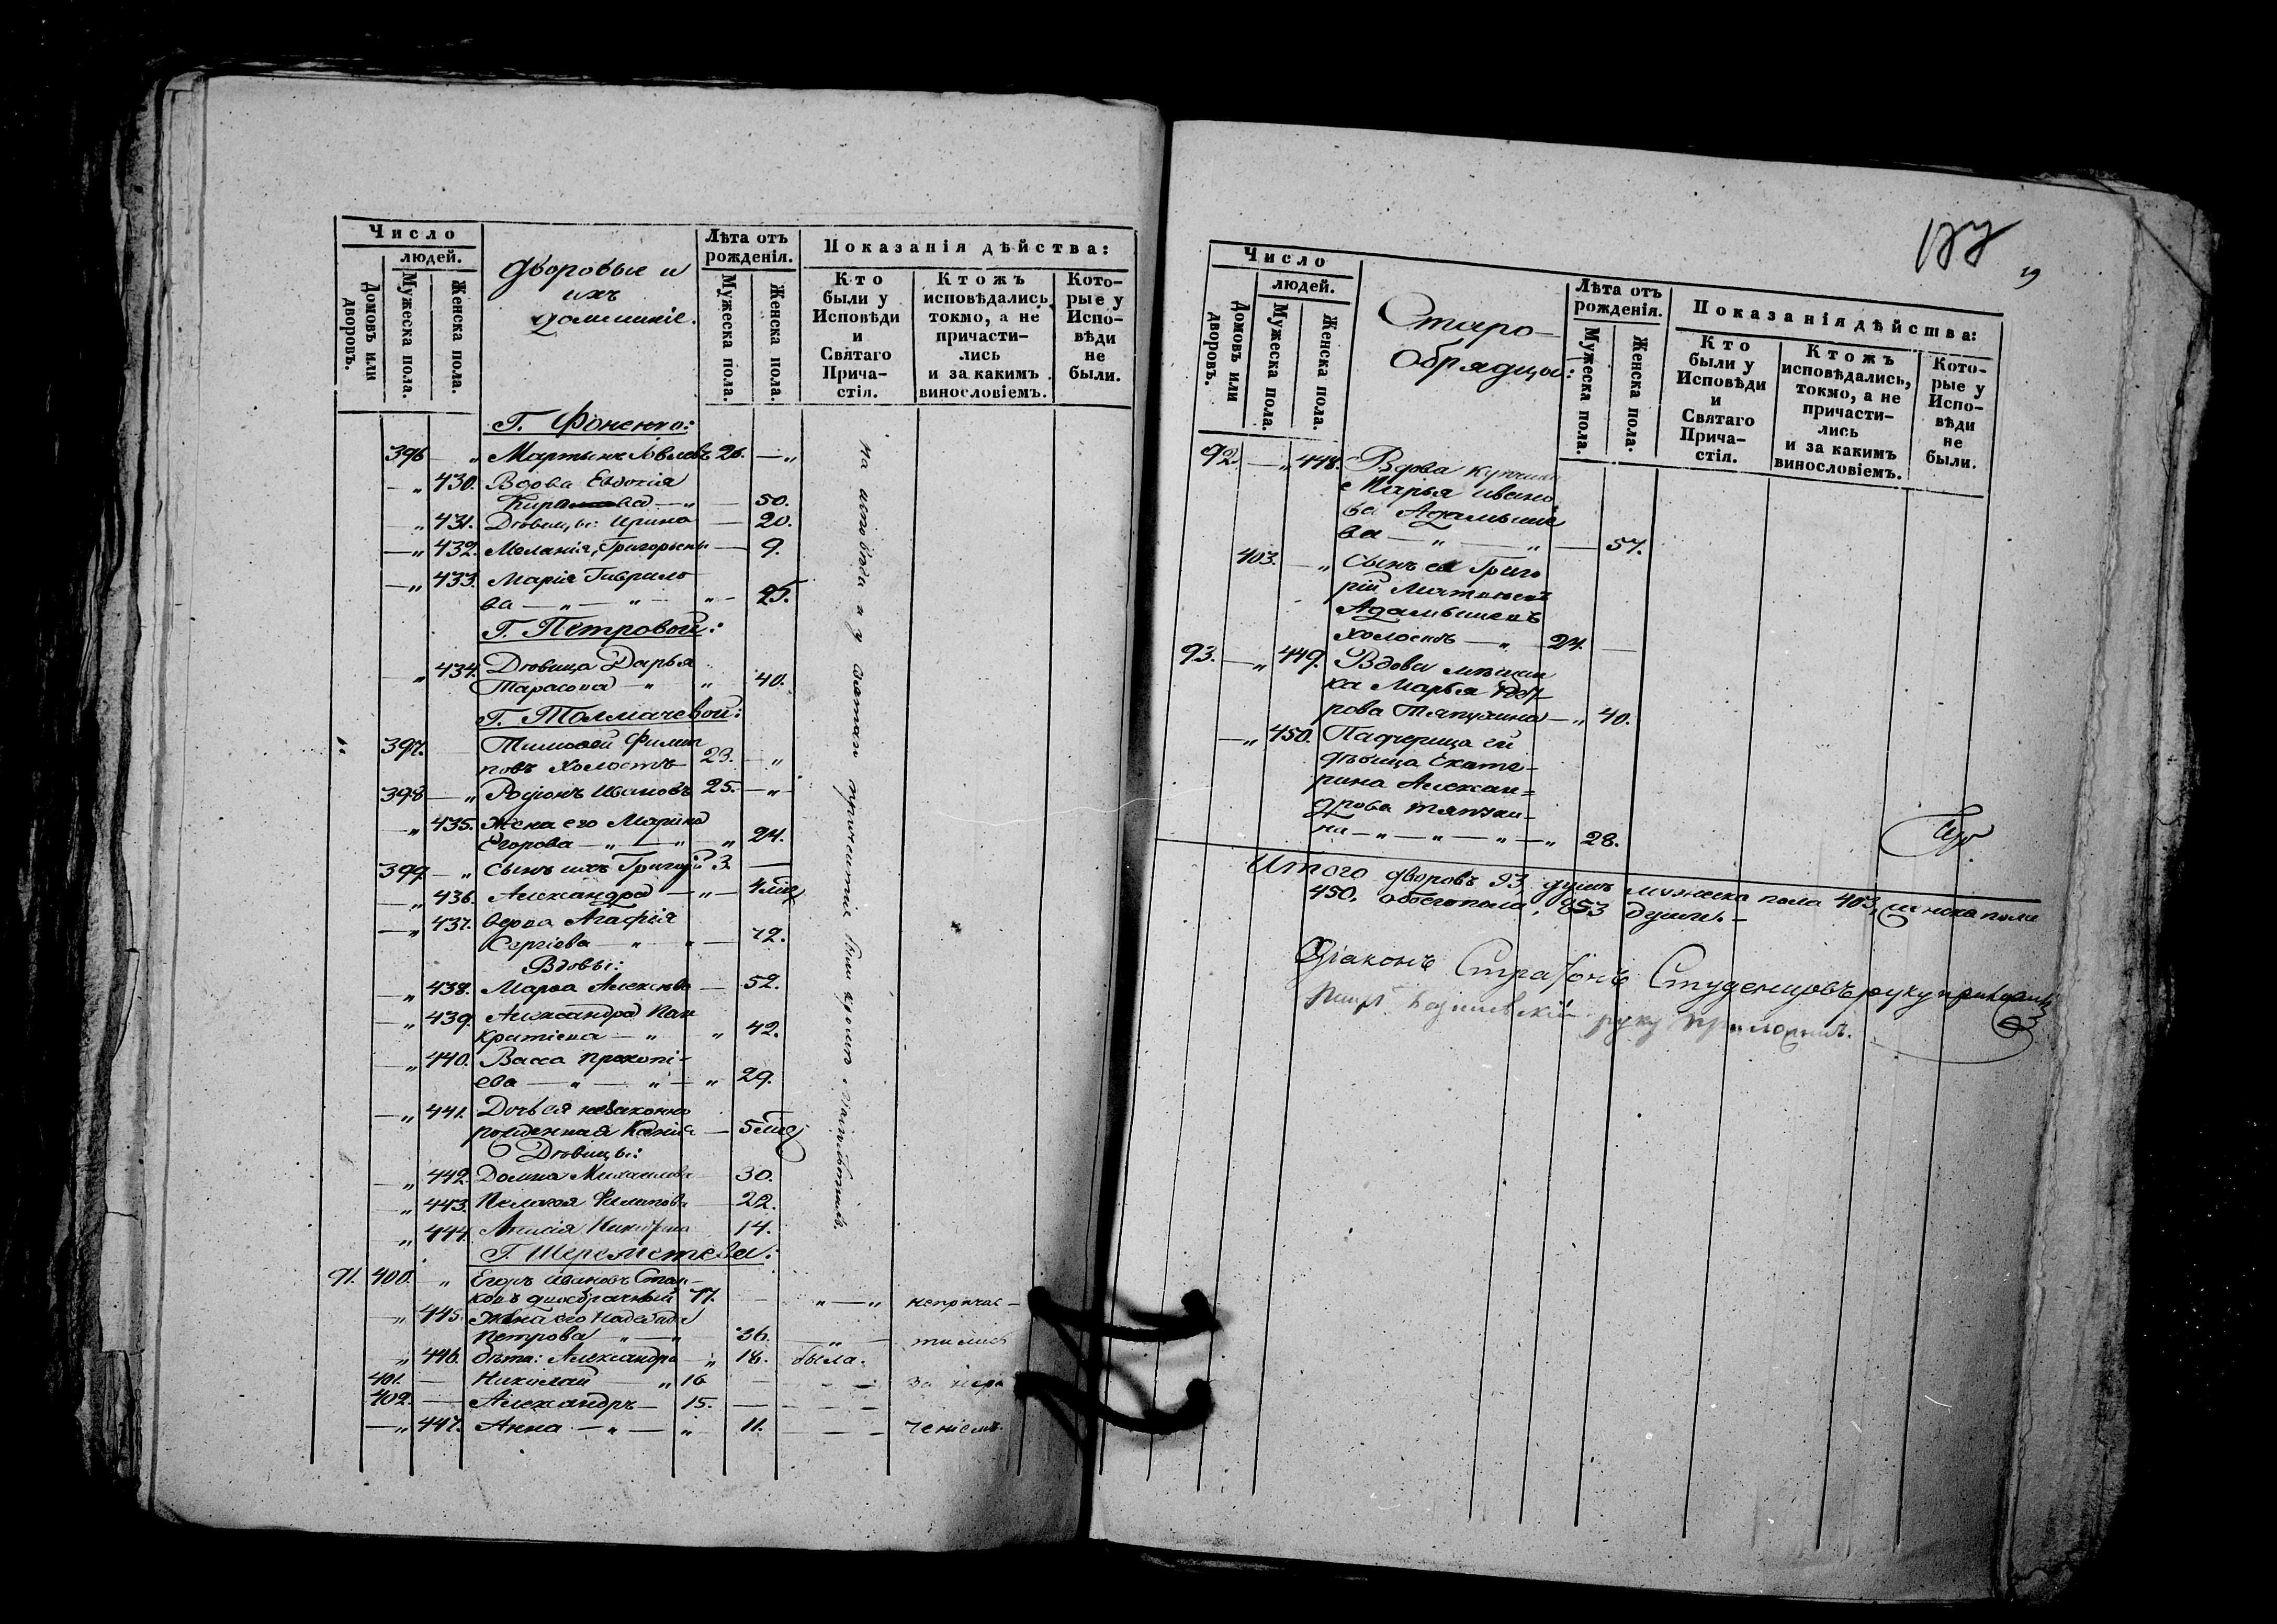 Число
людей.
Домовъ или дворовъ.
Мужеска пола.
Женска пола.
Дворовые и
ихъ
домашніе.
Лѣта отъ
рожденія.
Мужеска пола.
Женска пола.
Показанія дѣйства:
Кто
были у
Исповѣди
и
Святаго
Прича-
стія.
Ктожъ
исповѣдались
токмо, а не
причасти-
лись
и за какимъ
винословіемъ.
Кото-
рые у
Испо-
вѣди
не
были.
Г. Фоненко:
396 — „ Мартынъ 26. — „
— „ 430. Вдова Евдокія
— „ — 50.
— „ 431. Дѣвицы: Ирина — 20.
— „ 432. Меланія, Григорьевы — 9.
— „ 433. Марія Гаврило
ва — „ — „ — „ — 25.
Г. Петровой:
— „ 434. Дѣвица Дарья
Тарасова — „ „ 40.
Г. Толмачевой:
„ 397. Тимофей Филип
повъ холостъ 23. — „
398 — „ Родіонъ Ивановъ 25. — „
— „ 435. Жена его Марина
Егорова — „ — „ — „ 24.
399 — „ Сынъ ихъ Григорій 3. —
— „ 436. Александра — „ — 4 мѣс
— „ 437. Агафія
Сергіева — „ „ — 72.
Вдовы:
— „ 438. Марѳа Алексѣева — 52.
— „ 439. Александра Пан
кратіева — „ „ 42.
— „ 440. Васса Прокопі-
ева — „ — „ — „ 29.
— „ 441. Дочь ея незаконно
рожденная Ксенія — 5 мѣс
Дѣвицы:
— „ 442. Домна Михайлова 30.
— „ 443. Пелагея Филипова 22.
— „ 444. 14.
Г. Шереметева:
91. 400. — „ Егоръ Ивановъ
77. — „ — „ непричас-
— „ 445. Жена его Надежда
Петрова — „ — „ 36. — „ — тились
— „ 446. дѣти: Александра — „ 18. была.
401. — Николай — „ 16 — — — за
402. — Александръ — 15. — — — —
— „ 447. Анна — „ — „ 11. — — — ченіемъ.
на исповѣди и у святаго причастія были
Число
людей.
Домовъ или дворовъ.
Мужеска пола.
Женска пола.
Старо-
обрядцы:
Лѣта отъ
рожденія.
Мужеска пола.
Женска пола.
Показанія дѣйства:
Кто
были у
Исповѣди
и
Святаго
Прича-
стія.
Ктожъ
исповѣдались,
токмо, а не
причасти-
лись
и за какимъ
винословіемъ.
Кото-
рые у
Испо-
вѣди
не
были.
92. — „ 448. Вдова
Марья Ивано
ва
ва — „ — „ — 57.
403. — „ Сынъ ея Григо
рій
холостъ — „ — 24. —
93. — „ 449. Вдова мѣщан
ка Марья
рова — „ 40.
— „ 450. Падчерица ей
дѣвица Екате-
рина Алексан-
дрова
на — „ — „ — „ — „ 28.
Итого дворовъ 93, душъ мужеска пола 403, женска пола
450, обоего пола, 853 души. —
Діаконъ Студенцовъ руку приложилъ
руку приложилъ.